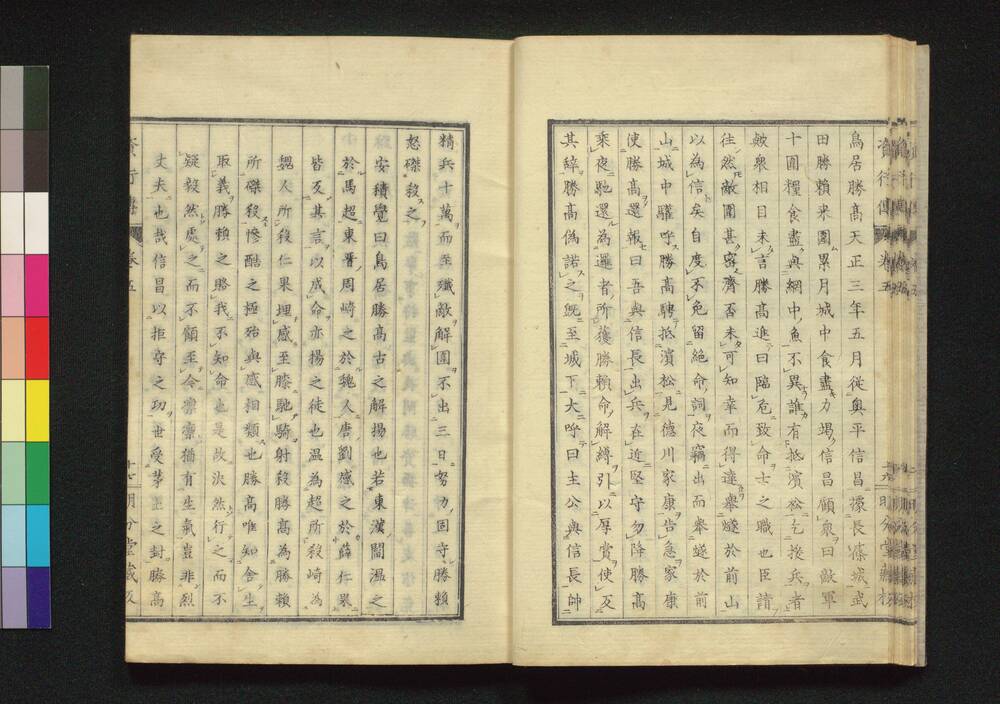 鳥居勝高天正三年五月從奥平信昌據長篠城武
田勝賴來圍累月城中食盡力竭信昌顧衆曰敵軍
十圍糧食盡與網中魚不異誰有抵濱松乞援兵者
皴衆相目未言勝高進曰臨危致命士之職也臣請
往然敵圍甚密濟否未可知幸而得達舉燧於前山
以為信矣自度不免留絕命詞夜竊出而舉燧於前
山城中驩呼勝高騁抵濱松見德川家康告急家康
使勝高還報曰吾與信長出兵在近堅守勿降勝高
乘夜馳還為邏者所獲勝賴命解縛引以厚賞使反
其辭勝高偽諾之既至城下大呼曰主公與信長帥
精兵十萬而至殱敵解圍不出三日努力固守勝賴
怒磔殺之
安積覺曰鳥居勝高古之解揚也若東漢閻溫之
於馬超東晉周崎之於魏人唐劉感之於薛仁杲
皆反其言以成命亦揚之徒也溫為超所殺崎為
魏人所殺仁杲埋感至膝馳騎射殺勝高為勝賴
所磔殺慘酷之極殆與感相類也勝高唯知舍生
取義勝賴之賂我不知命也是故決然行之而不
疑毅然處之而不顧至今凛凛猶有生氣豈非烈
丈夫也哉信昌以拒守之功世受茅土之封勝高